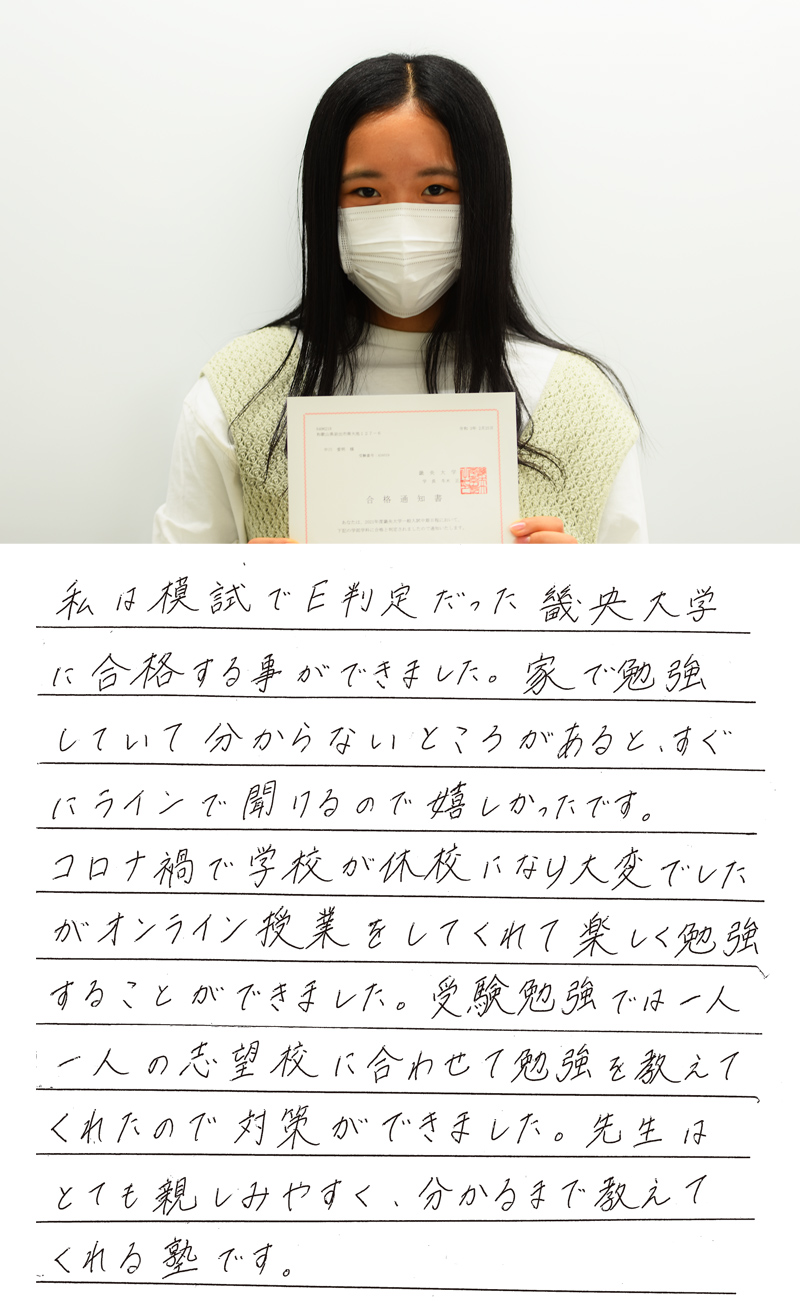 合格通知書
私は模試でE判定だった畿央大学
に合格する事ができました。家で勉強
していて分からないところがあると、すぐ
にラインで聞けるので嬉しかったです。
コロナ禍で学校が休校になり大変でした
がオンライン授業をしてくれて楽しく勉強
することができました。受験勉強では一人
一人の志望校に合わせて勉強を教えて
くれたので対策ができました。先生は
とても親しみやすく、分かるまで教えて
くれる塾です。